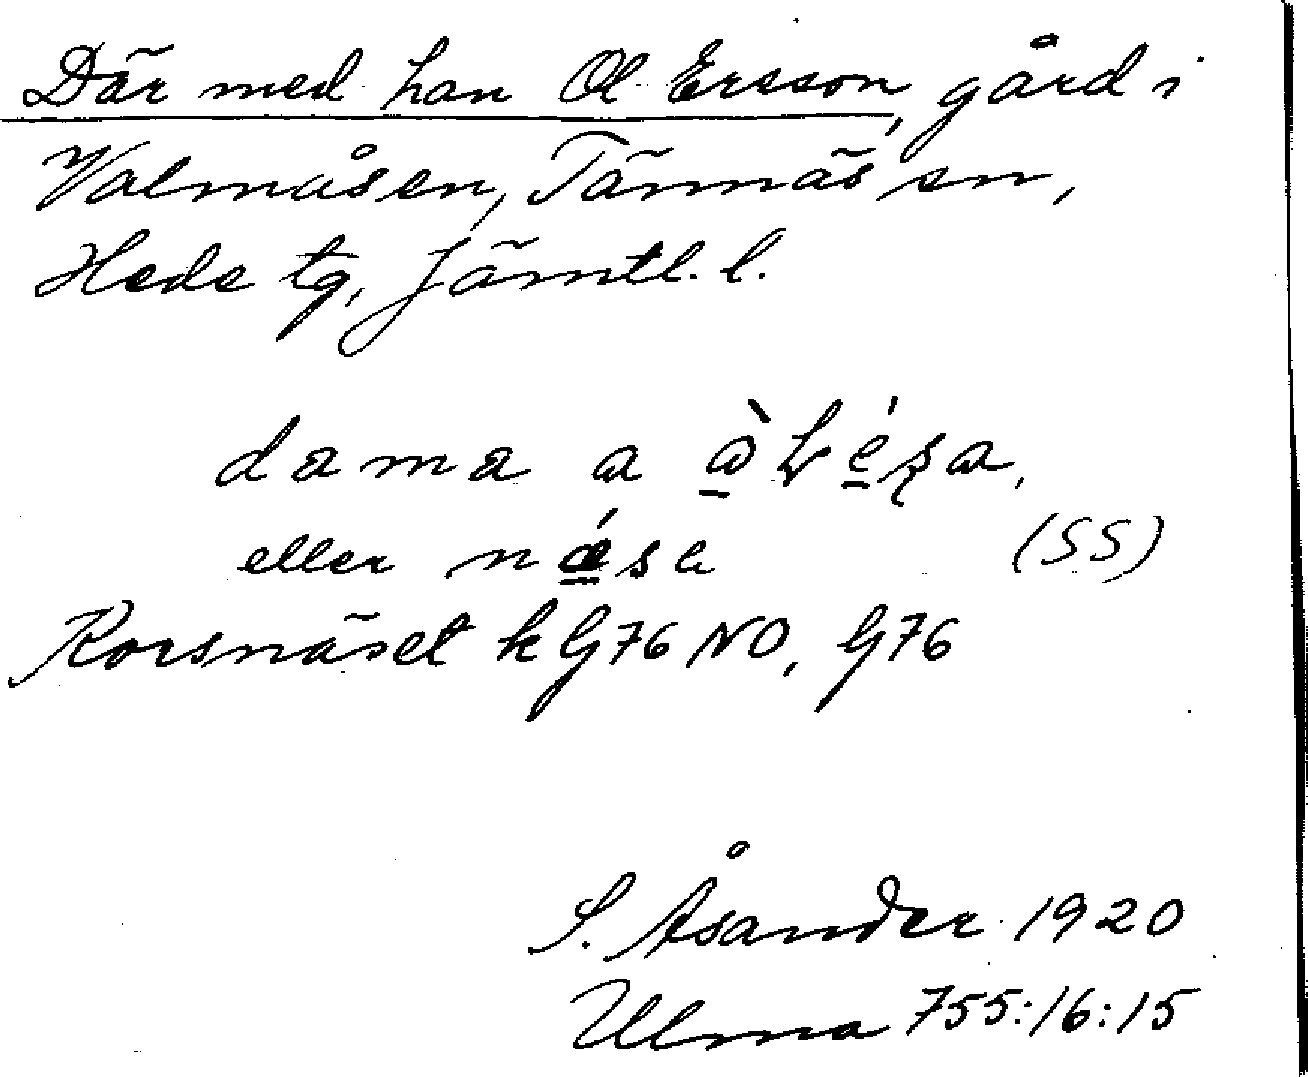 Där med han Ol Ersson, gård i
Valmåsen, Tännäs sn,
Hede tg, Jämtl. l.
dama a
eller näsa (SS)
Korsnäset k G76 NO, G76
S. Åsander 1920
Ulma 755:16:15